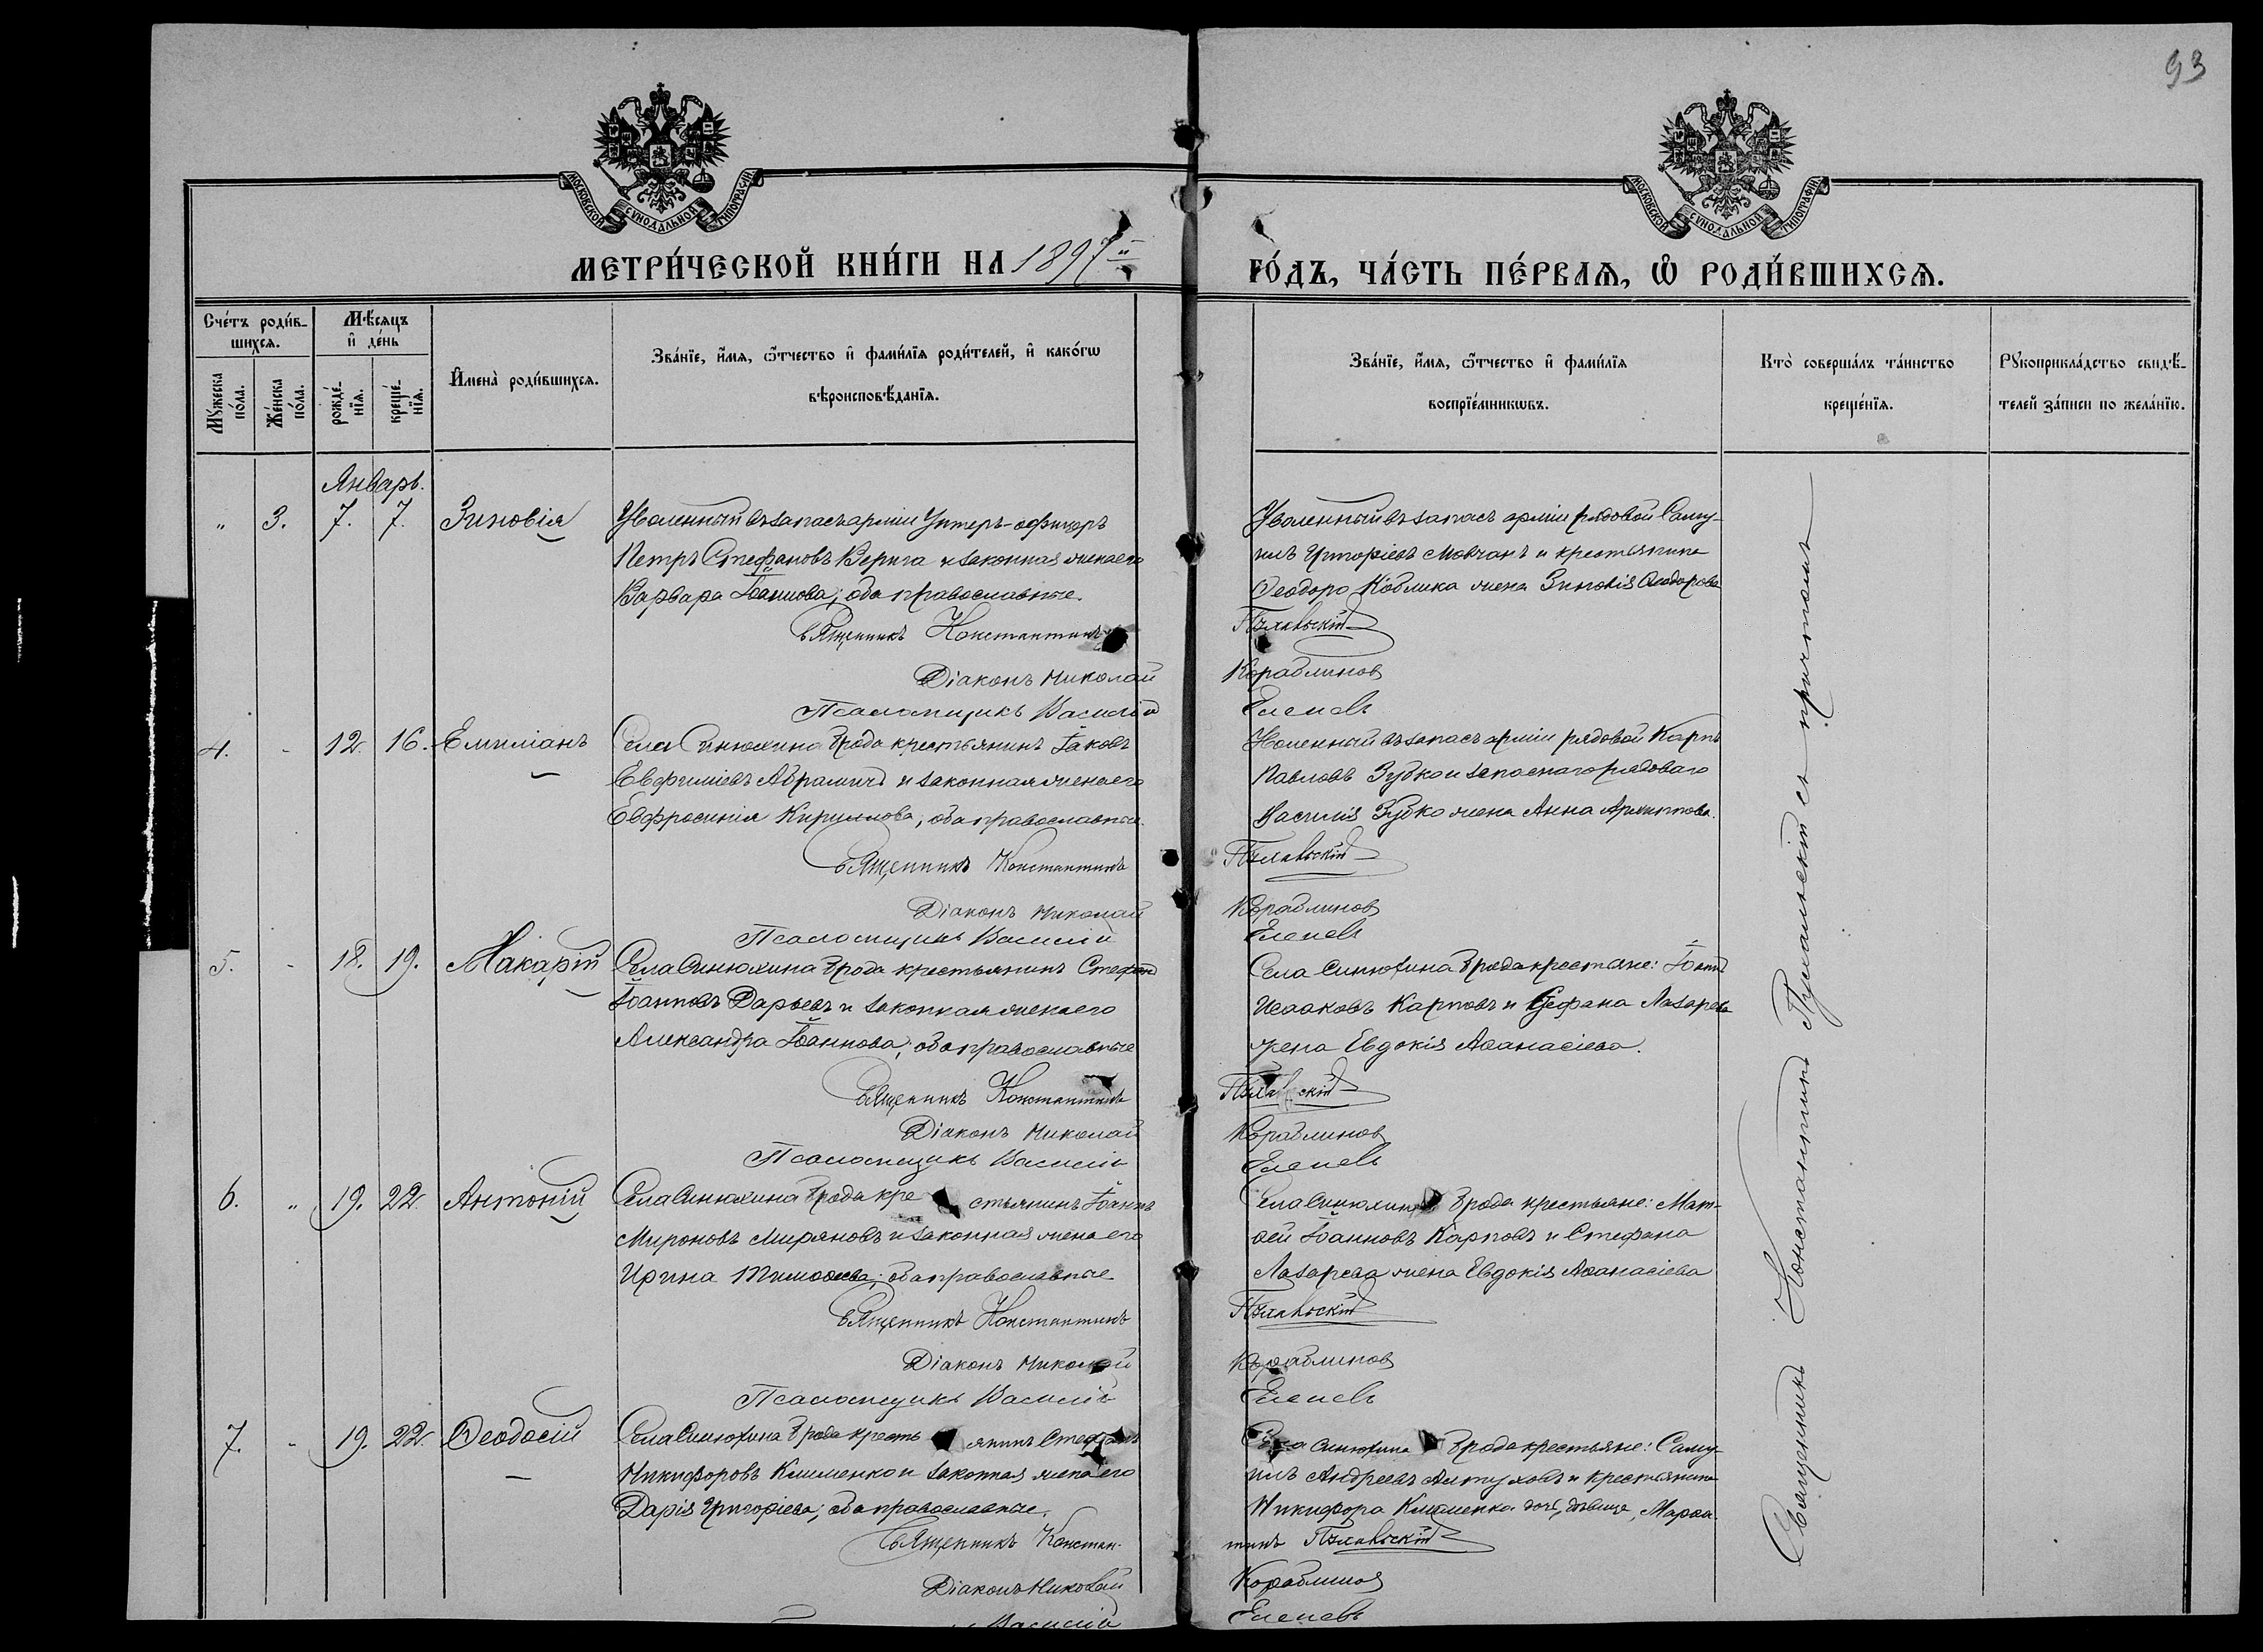 93
МОСКОВСКОЙ СѴНОДАЛЬНОЙ ТИПОГРАФІИ
МОСКОВСКОЙ СѴНОДАЛЬНОЙ ТИПОГРАФІИ
МЕТРИ́ЧЕСКОЙ КНИ́ГИ НА 1897й
ГО́ДЪ, ЧА́СТЬ ПЕ́РВАѦ, Ѡ҆ РОДИ́ВШИХСѦ.
Сче́тъ роди́в-
шихсѧ.
Мꙋ́жеска
по́ла.
Же́нска
по́ла.
Мѣ́сѧцъ
и҆ де́нь
рожде́-
нїѧ.
креще́-
нїѧ.
И҆мена̀ роди́вшихсѧ.
Зва́нїе, и҆́мѧ, ѻ҆́тчество и҆ фами́лїѧ роди́телей, и҆ како́гѡ
вѣроисповѣ́данїѧ.
Зва́нїе, и҆́мѧ, ѻ҆́тчество и҆ фами́лїѧ
воспрїе́мникѡвъ.
Кто̀ соверша́лъ та́инство
креще́нїѧ.
Рꙋкоприкла́дство свидѣ́-
телей за́писи по жела́нїю.
Январь.
" 3. 7. 7. Зиновія
Уволенный въ запасъ арміи Унтеръ-офицеръ
Петръ Стефановъ Верига и законная жена его
Варвара Іоаннова; оба православные.
Священникъ Константинъ
Діаконъ Николай
Псаломщикъ Василій
Уволенный въ запасъ арміи рядовой Саму-
илъ Григоріевъ Мовчанъ и крестьянина
Ѳеодора Коблика жена Зиновія Ѳеодорова
Пулавскій
Кораблинов
Еленевъ
4. - 12. 16. Емиліанъ
Села Синюхина брода крестьянинъ Іаковъ
Евфиміевъ Абрамичъ и законная жена его
Евфросинія Кириллова, оба православные.
Священникъ Константинъ
Діаконъ Николай
Псаломщикъ Василій
Уволенный въ запасъ арміи рядовой Карпъ
Павловъ Зубко и запаснаго рядоваго
Василія Зубко жена Анна Архиппова.
Пулавскій
Кораблинов
Еленевъ
5. - 18. 19. Макарій
Села Синюхина брода крестьянинъ Стефанъ
Іоанновъ Дарьевъ и законная жена его
Александра Іоаннова; оба православные
Священникъ Константинъ
Діаконъ Николай
Псаломщикъ Василій
Села Синюхина брода крестьяне: Іоаннъ
Исааковъ Карповъ и Стефана Лазарева
жена Евдокія Аѳанасіева.
Пулавскій
Кораблинов
Еленевъ
6. " 19. 22. Антоній
Села Синюхина брода кре стьянинъ Іоаннъ
Мироновъ Мируновъ и законная жена его
Ирина Тимоѳеева; оба православные
Священникъ Константинъ
Діаконъ Николай
Псаломщикъ Василій
Села Синюхина брода крестьяне: Мат-
ѳей Іоанновъ Карповъ и Стефана
Лазарева жена Евдокія Аѳанасіева
Пулавскій
Кораблинов
Еленевъ
7. - 19. 22. Ѳеодосій
Села Синюхина брода кресть янинъ Стефанъ
Никифоровъ Клименко и законная жена его
Дарія Григоріева; оба православные.
Священникъ Констан-
Діаконъ Николай
Василій
Села Синюхина брода крестьяне: Саму-
илъ Андреевъ Алтуховъ и крестьянина
Никифора Клименка дочь, девица, Марѳа.
тинъ Пулавскій
Кораблинов
Еленевъ
Священникъ Константинъ Пулавскій съ причтомъ